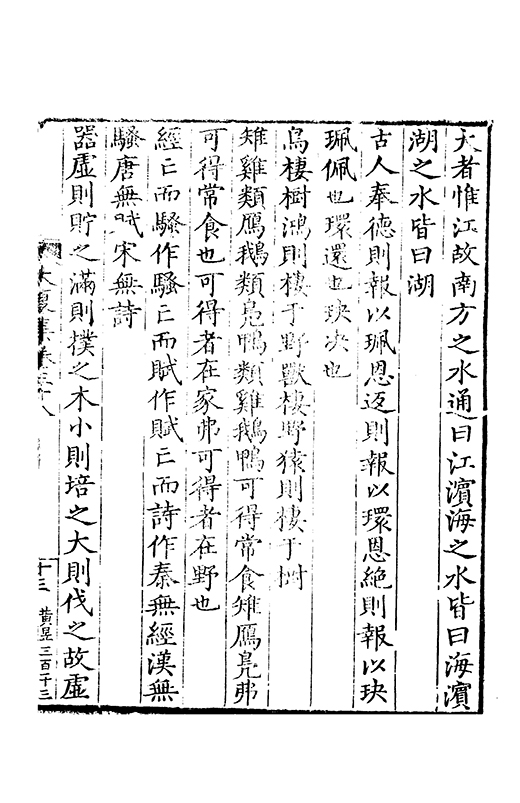 大者惟江故南方之水通曰江濵海之水皆曰海濵
湖之水皆曰湖
古人奉德則報以珮恩返則報以環恩絶則報以玦
珮佩也環還也玦决也
鳥棲樹鴻則棲于野獸棲野猿則棲于樹
雉雞類鴈鵝類鳬鴨類雞鵝鴨可得常食雉鴈鳬弗
可得常食也可得者在家弗可得者在野也
經亡而騷作騷亡而賦作賦亡而詩作秦無經漢無
騷唐無賦宋無詩
器虛則貯之滿則撲之木小則培之大則伐之故虛
大復集卷三十八
十三
黃晃三百干三